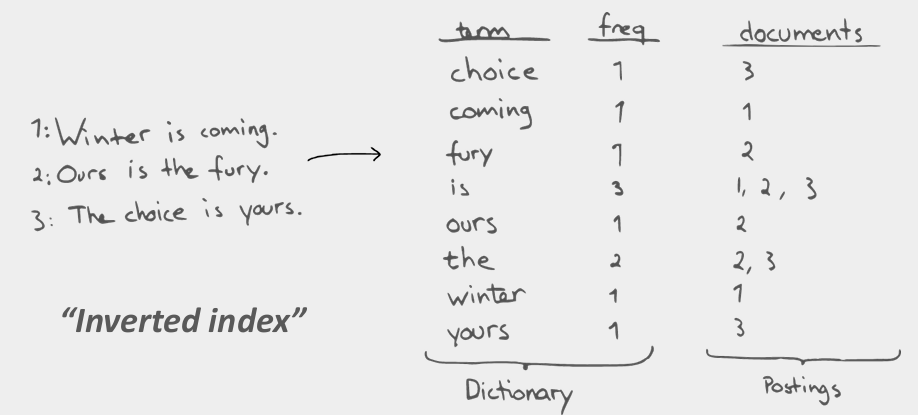 1: Winter is coming.
2: Ours is the fury.
3: The choice is yours.
"Inverted index"
term freq documents
choice 1 3
coming 1 1
fury 1 2
is 3 1, 2, 3
ours 1 2
the 2 2, 3
winter 1 1
yours 1 3
Dictionary Postings